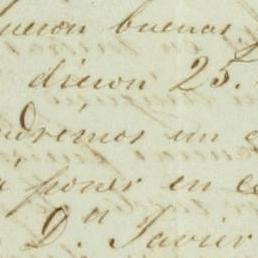 ueron buenas.
dieron 25.
ndremos un
á poner en
D.ⁿ Javier